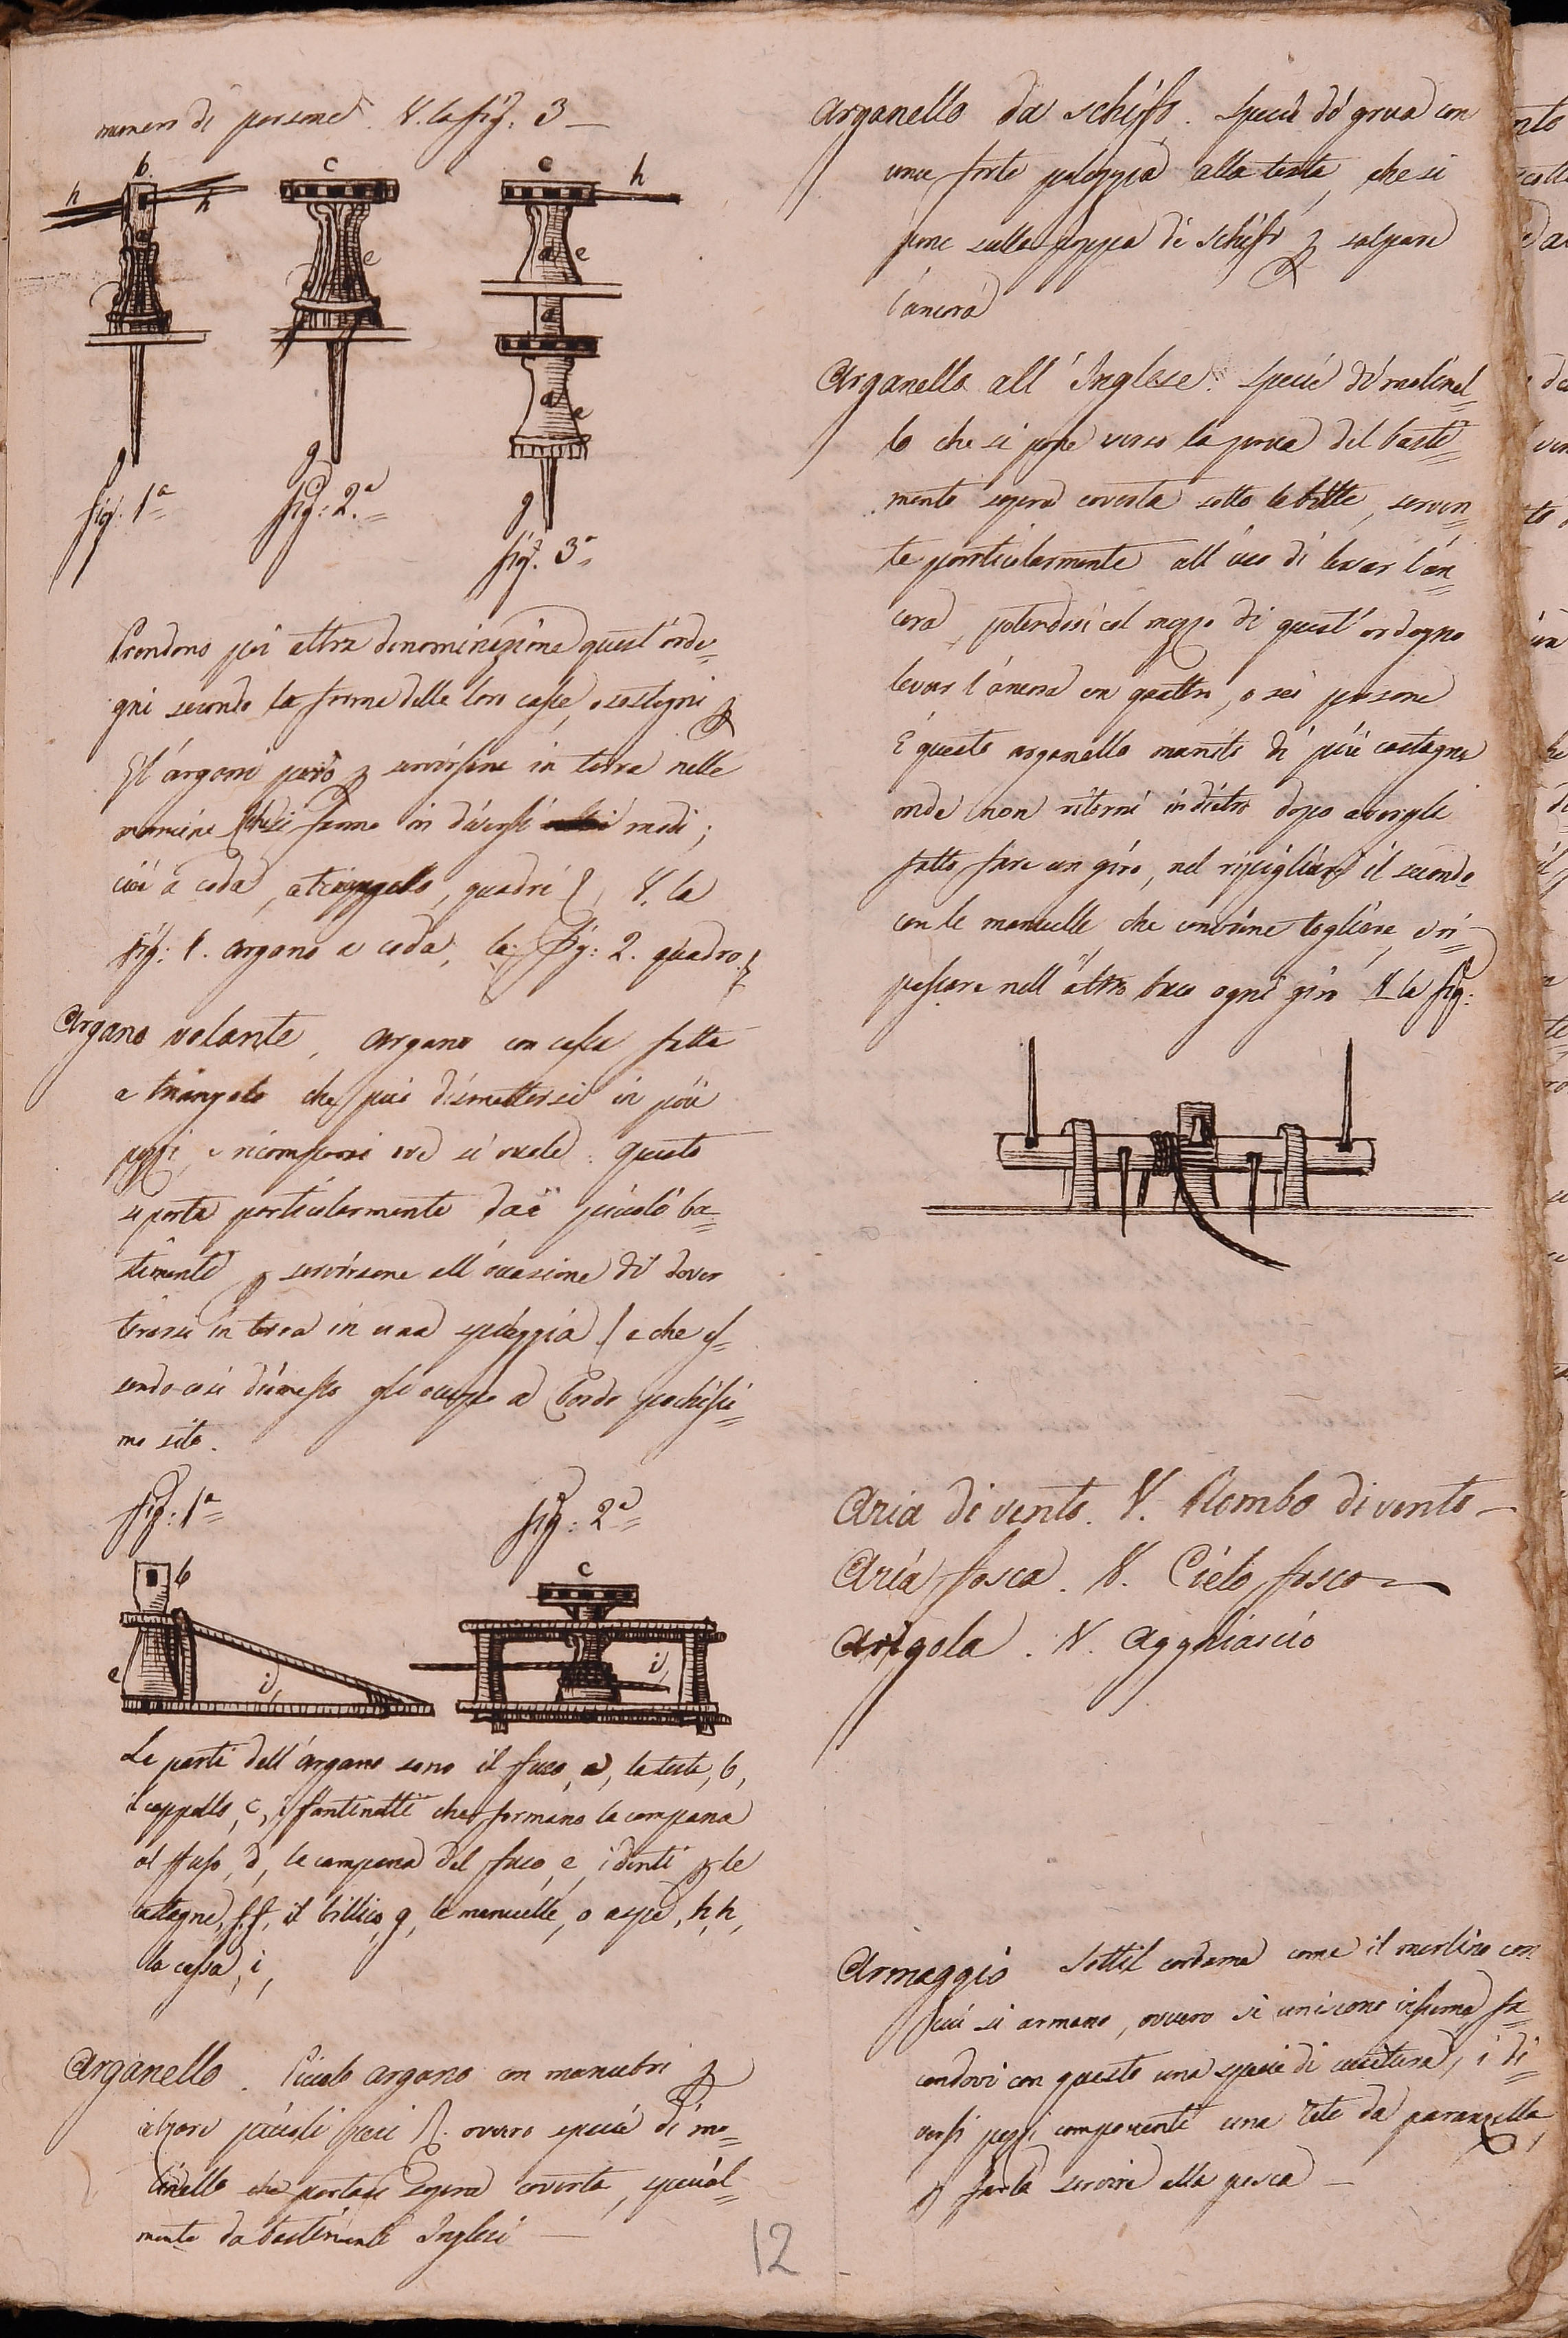 numero di persone. V. la fig. 3 —
b. c c h
h h
e a e
a
a e
g g
g
fig: 1ª fig: 2.ª
fig. 3ª
Prendono poi altra denominazione quest'orde=
gni secondo la forma delle loro casse, o sostegni
Gl'argani però servirsene in terra nelle
si fanno in diversi modi;
cioè a coda, a triangolo, quadri V. la
fig: 1. argano a coda; la fig: 2. quadro
Argano volante, argano con cassa fatta
a triangolo che può dismettersi in più
pezzi, e ricomporsi ove si vuole. Questo
si porta particolarmente dai piccoli ba=
stimenti servirsene all'occasione di dover
tirarsi in terra in una spiaggia e che es=
sendo così dismesso gli occupa a bordo pochissi=
mo sito.
fig: 1ª fig: 2ª
b c
e i i
Le parti dell'argano sono il fuso, a, la testa, b,
il cappello, c, i fantinetti che formano la campana
al fuso, d, la campana del fuso, e, i denti le
castagne, f.f, il billico, g, le manuelle, o aspe, h,h,
la cassa, i,
Arganello. Piccolo argano con manubri
alzare piccoli pesi ovvero specie di mo=
linello che portasi sopra coverta, special=
mente da bastimenti Inglesi —
12
Arganello da schifo. Specie di grua con
una forte poleggia alla testa, che si
pone sulla poppa di schifi salpare
l'ancora
Arganello all'Inglese. Specie di molinel=
lo che si pone verso la prua del basti=
mento sopra coverta sotto le bitte, serven=
te particolarmente all'uso di levar l'an=
cora, potendosi col mezzo di quest'ordegno
levar l'ancora con quattro, o sei persone
È questo arganello munito di più castagne
onde non ritorni indietro dopo avergli
fatto fare un giro, nel ripigliare il secondo
con le manuelle, che conviene togliere, e ri=
passare nell'altro buco ogni giro V. la fig:
Aria di vento. V. Rombo di vento —
Aria fosca. V. Cielo fosco —
Arigola. V. Agghiascio
Armaggio Sottil cordame come il merlino con
cui si armano, ovvero si uniscono insieme fa=
cendovi con questo una specie di cucitura, i di=
versi pezzi componenti una rete da paranzella,
farla servire alla pesca —